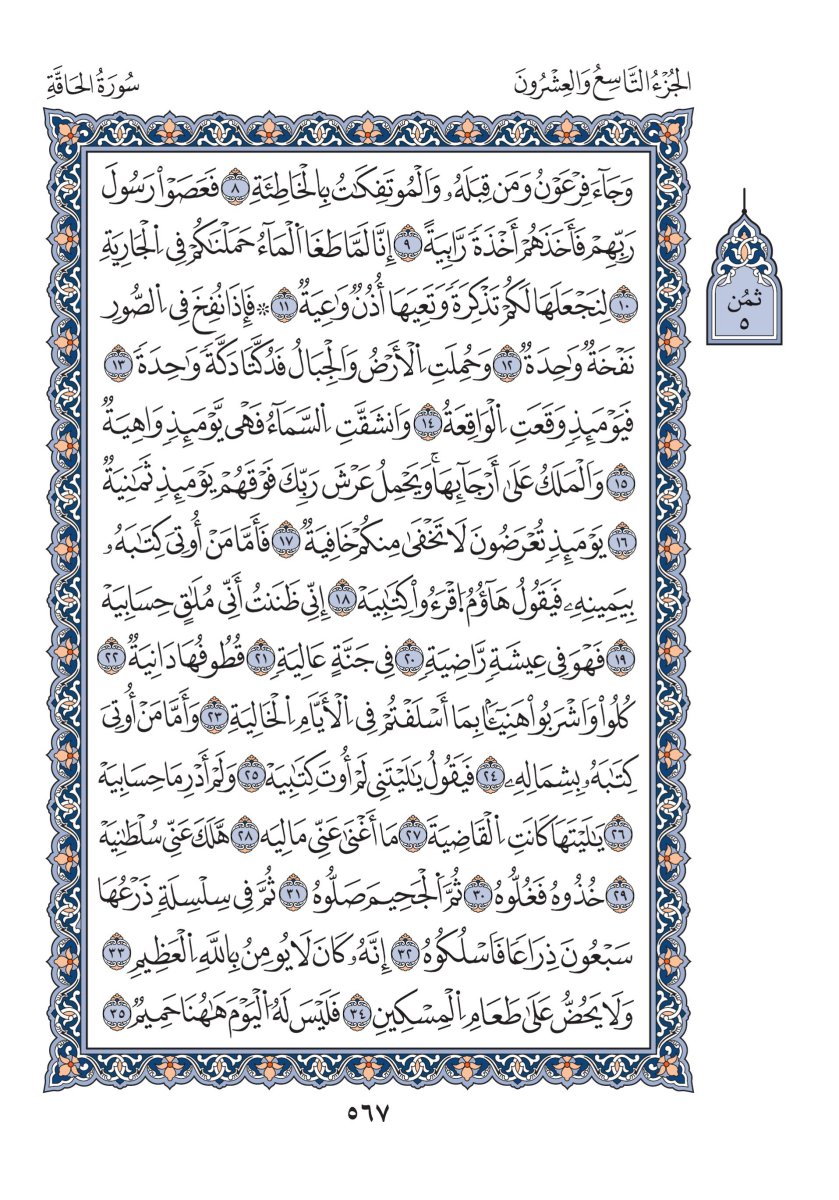 الجُزْءُ التَّاسِعُ وَالعِشْرُونَ
سُورَةُ الحَاقَّةِ
وَجَآءَ فِرْعَوْنُ وَمَن قَبْلَهُۥ وَالْمُوتَفِكَتُ بِالْخَاطِئَةِ ٨ فَعَصَوْاْ رَسُولَ
رَبِّهِمْ فَأَخَذَهُمْ أَخْذَةً رَّابِيَةً ٩ إِنَّا لَمَّا طَغَا اَلْمَآءُ حَمَلْنَٰكُمْ فِي اِلْجَارِيَةِ
١٠ لِنَجْعَلَهَا لَكُمْ تَذْكِرَةً وَتَعِيَهَا أُذُنٌ وَٰعِيَةٌ ١١ ۞ فَإِذَا نُفِخَ فِي اِلصُّورِ
نَفْخَةٌ وَٰحِدَةٌ ١٢ وَحُمِلَتِ اِلْأَرْضُ وَالْجِبَالُ فَدُكَّتَا دَكَّةً وَٰحِدَةً ١٣
فَيَوْمَئِذٍ وَقَعَتِ اِلْوَاقِعَةُ ١٤ وَانشَقَّتِ اِلسَّمَآءُ فَهْيَ يَوْمَئِذٍ وَاهِيَةٌ
١٥ وَالْمَلَكُ عَلَىٰ أَرْجَآئِهَاۚ وَيَحْمِلُ عَرْشَ رَبِّكَ فَوْقَهُمْ يَوْمَئِذٍ ثَمَٰنِيَةٌ
١٦ يَوْمَئِذٍ تُعْرَضُونَ لَا تَخْفَىٰ مِنكُمْ خَافِيَةٌ ١٧ فَأَمَّا مَنْ أُوتِيَ كِتَٰبَهُۥ
بِيَمِينِهِۦ فَيَقُولُ هَآؤُمُ اُقْرَءُواْ كِتَٰبِيَهْ ١٨ إِنِّي ظَنَنتُ أَنِّي مُلَٰقٍ حِسَابِيَهْ
١٩ فَهْوَ فِي عِيشَةٍ رَّاضِيَةٍ ٢٠ فِي جَنَّةٍ عَالِيَةٍ ٢١ قُطُوفُهَا دَانِيَةٌ ٢٢
كُلُواْ وَاشْرَبُواْ هَنِيٓـَٔۢا بِمَا أَسْلَفْتُمْ فِي اِلْأَيَّامِ اِلْخَالِيَةِ ٢٣ وَأَمَّا مَنْ أُوتِيَ
كِتَٰبَهُۥ بِشِمَالِهِۦ ٢٤ فَيَقُولُ يَٰلَيْتَنِي لَمْ أُوتَ كِتَٰبِيَهْ ٢٥ وَلَمْ أَدْرِ مَا حِسَابِيَهْ
٢٦ يَٰلَيْتَهَا كَانَتِ اِلْقَاضِيَةَ ٢٧ مَا أَغْنَىٰ عَنِّي مَالِيَه ٢٨ هَّلَكَ عَنِّي سُلْطَٰنِيَهْ
٢٩ خُذُوهُ فَغُلُّوهُ ٣٠ ثُمَّ اَلْجَحِيمَ صَلُّوهُ ٣١ ثُمَّ فِي سِلْسِلَةٍ ذَرْعُهَا
سَبْعُونَ ذِرَاعًا فَاسْلُكُوهُ ٣٢ إِنَّهُۥ كَانَ لَا يُومِنُ بِاللَّهِ اِلْعَظِيمِ ٣٣
وَلَا يَحُضُّ عَلَىٰ طَعَامِ اِلْمِسْكِينِ ٣٤ فَلَيْسَ لَهُ اُلْيَوْمَ هَٰهُنَا حَمِيمٌ ٣٥
ثُمُن
٥
٥٦٧